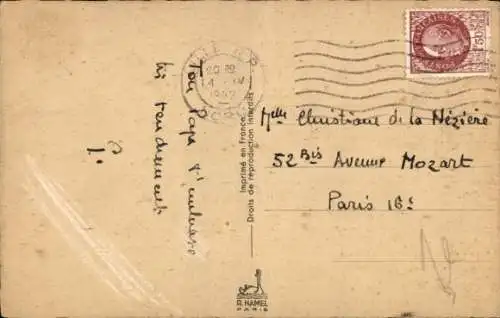 Ton Papa t'embrasse
très tendrement
P.
20 30
Imprimé en France
Droits de reproduction interdits
A. HAMEL
PARIS
FRANÇAISES
POSTES
1F50
Melle Christiane de la Nézière
52 Bis Avenue Mozart
Paris 16e